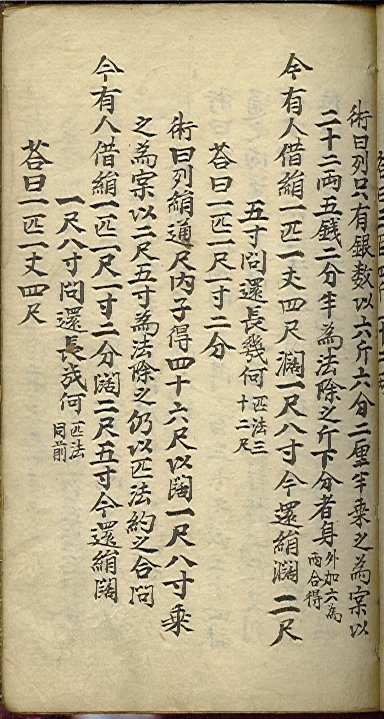 術曰列只有銀数以六斤六分二厘半乗之為宲以
二十二両五銭二分半為法除之斤下分者身外加六為両合得
今有人借絹一匹一丈四尺濶一尺八寸今還絹濶二尺
五寸問還長幾何匹法三十二尺
荅曰一匹一尺一寸二分
術曰列絹通尺内子得四十六尺以闊一尺八寸乗
之為宲以二尺五寸為法除之仍以匹法約之合問
今有人借絹一匹一尺一寸二分闊二尺五寸今還絹闊
一尺八寸問還長幾何匹法同前
荅曰一匹一丈四尺